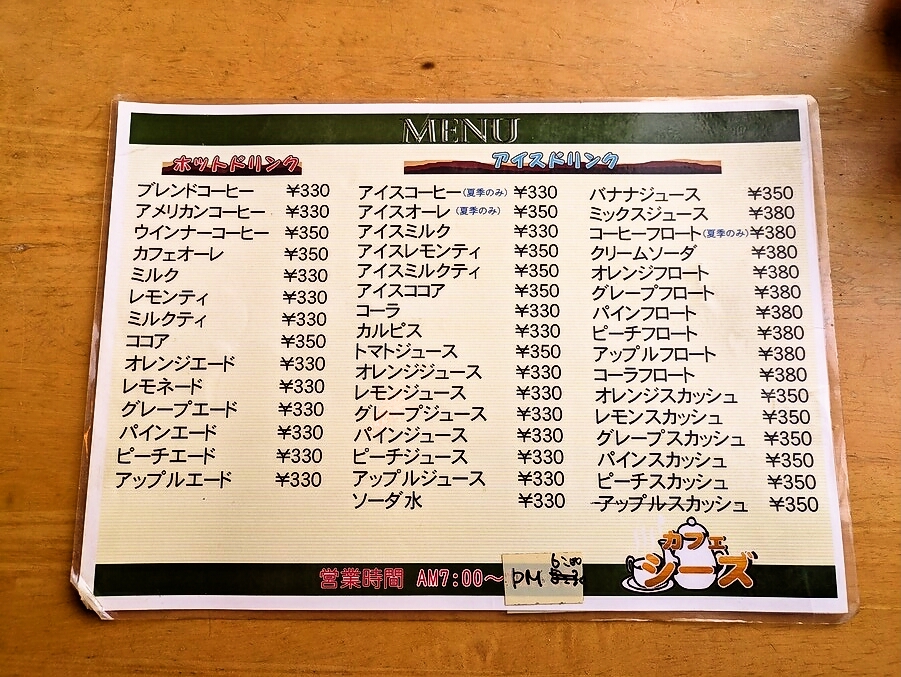 MENU
ホットドリンク
ブレンドコーヒー ¥330
アメリカンコーヒー ¥330
ウインナーコーヒー ¥350
カフェオーレ ¥350
ミルク ¥330
レモンティ ¥330
ミルクティ ¥330
ココア ¥350
オレンジエード ¥330
レモネード ¥330
グレープエード ¥330
パインエード ¥330
ピーチエード ¥330
アップルエード ¥330
アイスドリンク
アイスコーヒー(夏季のみ) ¥330
アイスオーレ(夏季のみ) ¥350
アイスミルク ¥330
アイスレモンティ ¥350
アイスミルクティ ¥350
アイスココア ¥350
コーラ ¥330
カルピス ¥330
トマトジュース ¥350
オレンジジュース ¥330
レモンジュース ¥330
グレープジュース ¥330
パインジュース ¥330
ピーチジュース ¥330
アップルジュース ¥330
ソーダ水 ¥330
バナナジュース ¥350
ミックスジュース ¥380
コーヒーフロート(夏季のみ) ¥380
クリームソーダ ¥380
オレンジフロート ¥380
グレープフロート ¥380
パインフロート ¥380
ピーチフロート ¥380
アップルフロート ¥380
コーラフロート ¥380
オレンジスカッシュ ¥350
レモンスカッシュ ¥350
グレープスカッシュ ¥350
パインスカッシュ ¥350
ピーチスカッシュ ¥350
アップルスカッシュ ¥350
営業時間 AM7:00～ PM 6:00
カフェ
シーズ